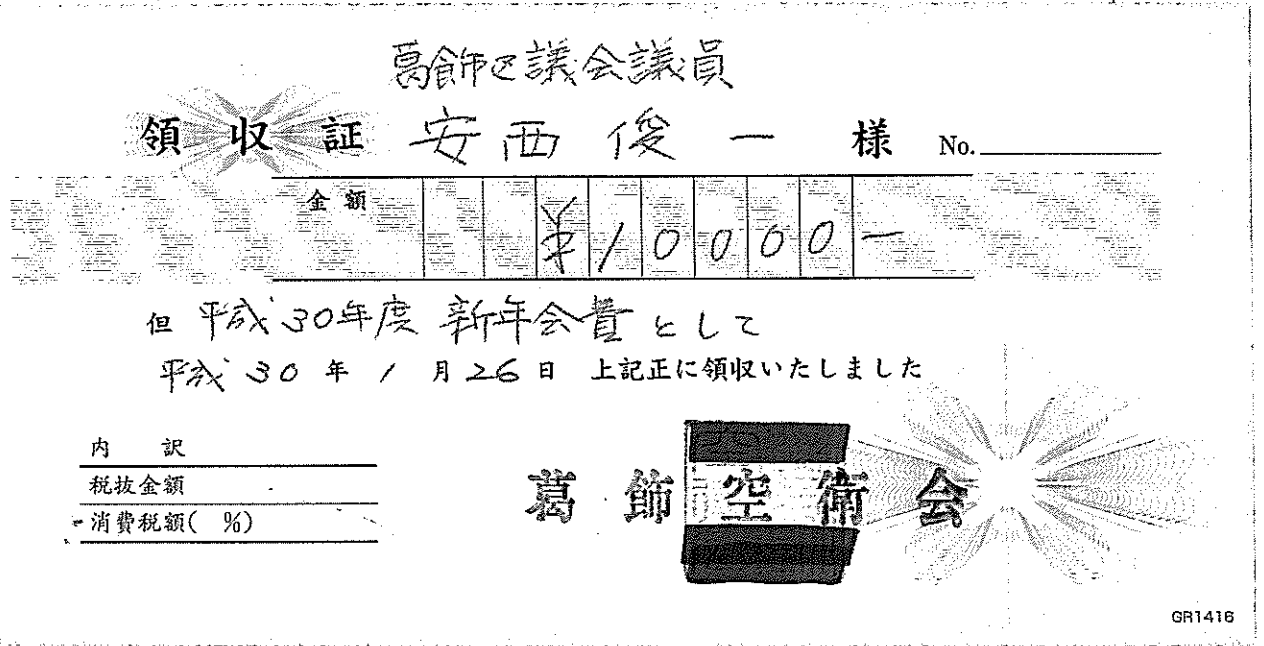 葛飾区議会議員
領収証 安西俊一 様 No.
金額 ¥10000-
但 平成30年度 新年会費として
平成30年1月26日 上記正に領収いたしました
内訳
税抜金額
消費税額( %)
葛飾空衛会
GR1416